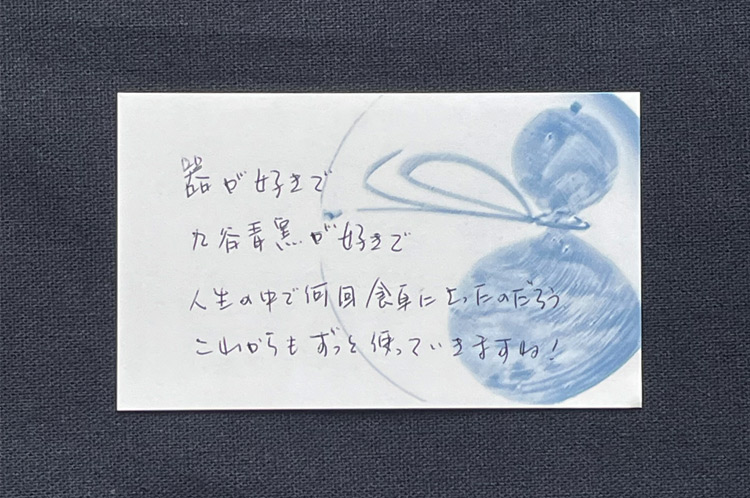 器が好きで
九谷青窯が好きで
人生の中で何回食卓に上ったのだろう
これからもずっと使っていきますね!